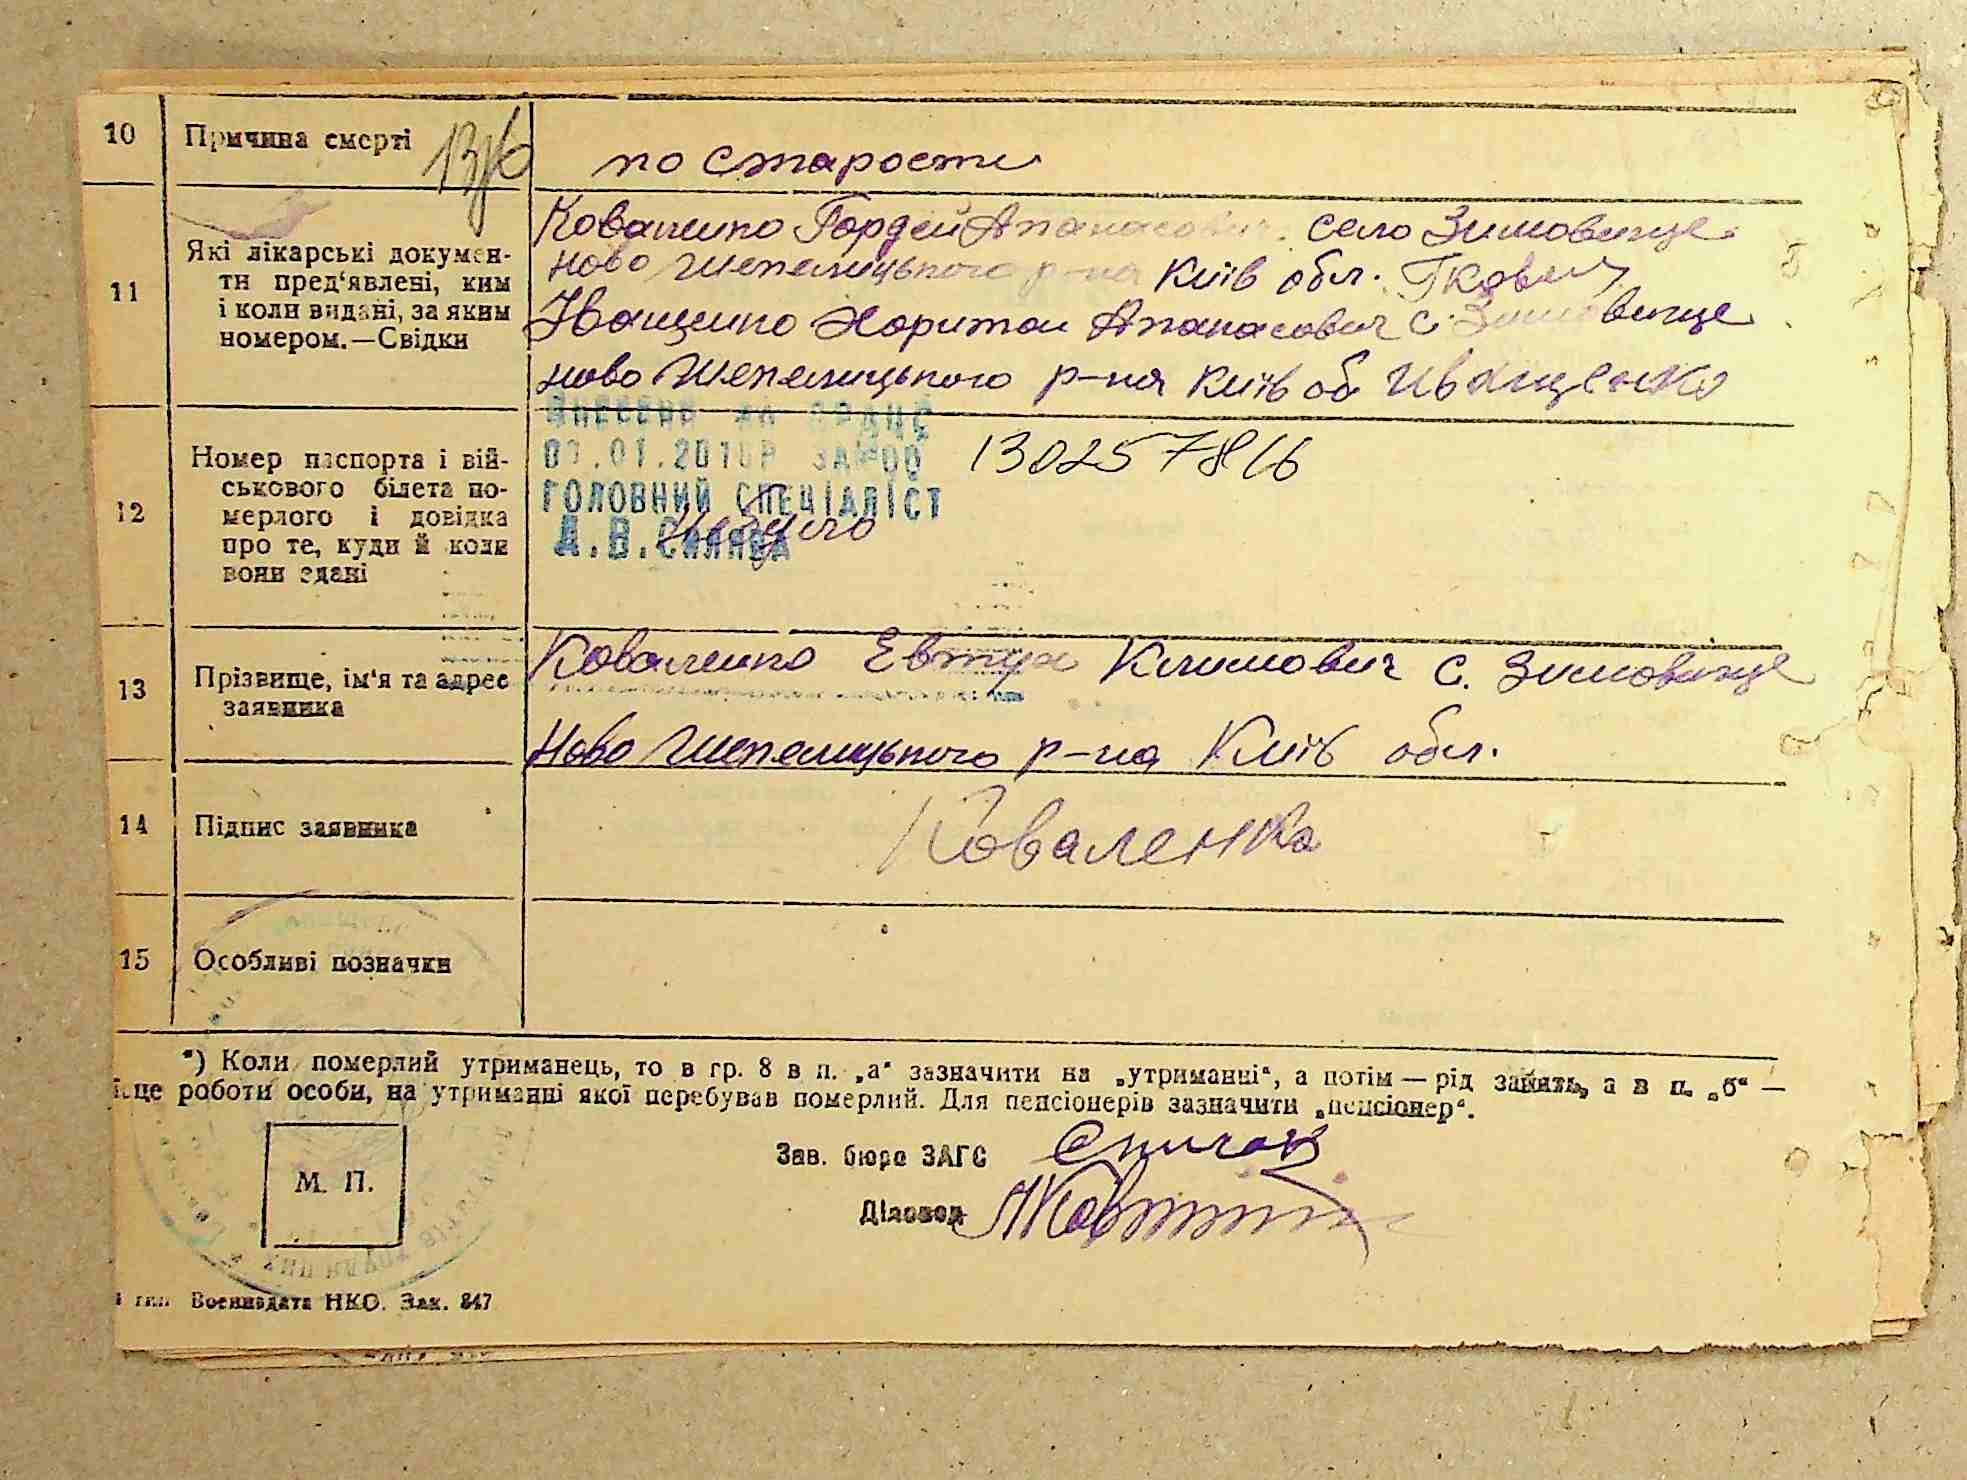 10 Причина смерті
по старости
11 Які лікарські докумен-
ти пред'явлені, ким
і коли видані, за яким
номером.—Свідки
Коваленко Гордей Апанасович село Зимовище
ново Шепелицького р-на Київ обл. Гковал
Іващенко Харитон Апанасович с. Зимовище
ново Шепелицького р-на Київ об Иващенко
12 Номер паспорта і вій-
ськового білета по-
мерлого і довідка
про те, куди й коли
вони здані
ВНЕСЕНО ДО
.01.2010Р ЗА №00 130257816
ГОЛОВНИЙ СПЕЦІАЛІСТ
не було
13 Прізвище, ім'я та адрес
заявника
Коваленко Евтух Климович с. Зимовище
Ново Шепелицького р-на Київ обл.
14 Підпис заявника
Коваленко
15 Особливі позначки
*) Коли померлий утриманець, то в гр. 8 в п. „а“ зазначити на „утриманні“, а потім — рід занять, а в п. „б“ —
це роботи особи, на утриманні якої перебував померлий. Для пенсіонерів зазначити „пенсіонер“.
Зав. бюро ЗАГС
Діловод
М. П.
тип. Воениздата НКО. Зак. 847